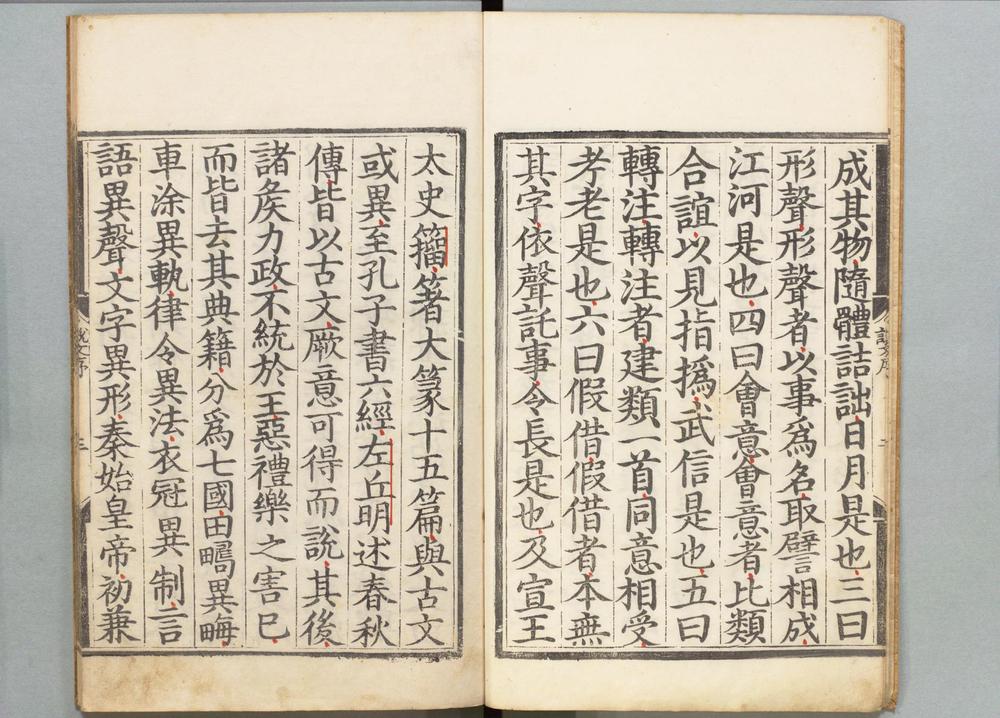 成其物隨體詰詘日月是也三曰
形聲形聲者以事爲名取譬相成
江河是也四曰會意會意者比類
合誼以見指撝武信是也五曰
轉注轉注者建類一首同意相受
考老是也六曰假借假借者本無
其字依聲託事令長是也及宣王
太史籒箸大篆十五篇與古文
或異至孔子書六經左丘明述春秋
傳皆以古文厥意可得而說其後
諸矦力政不統於王惡禮樂之害巳
而皆去其典籍分爲七國田疇異畮
車涂異軌律令異法衣冠異制言
語異聲文字異形秦始皇帝初兼
說文序